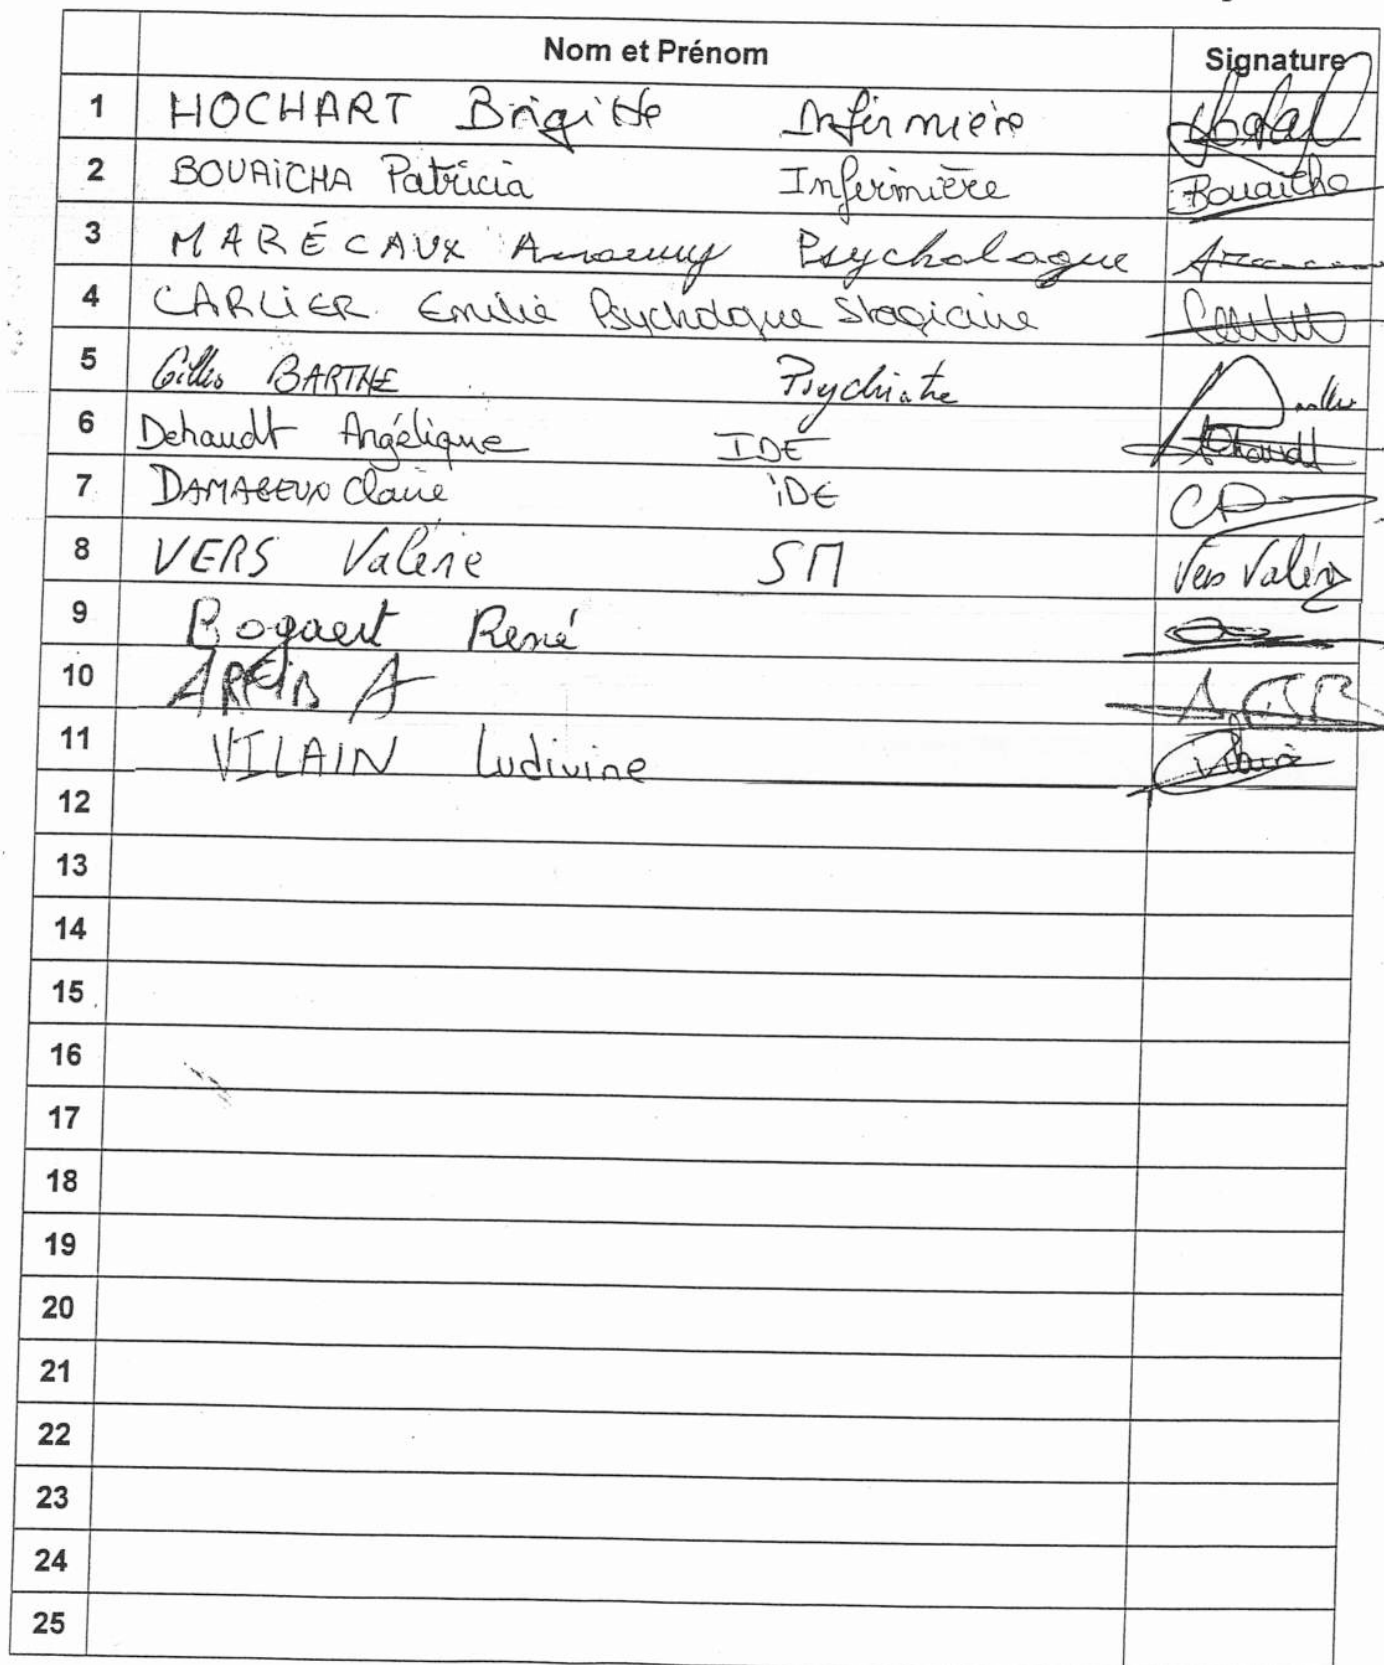 Nom et Prénom Signature
1 HOCHART Brigitte Infirmière
2 BOUAÏCHA Patricia Infirmière Bouaicha
3 MARÉCAUX Psychologue
4 CARLIER Emilie Psychologue Stagiaire
5 Gilles BARTHE Psychiatre
6 Dehaudt Angélique IDE
7 Claire IDE CD
8 VERS Valérie SM Vers Valérie
9 Bogaert René
10 A
11 VILAIN Ludivine
12
13
14
15
16
17
18
19
20
21
22
23
24
25